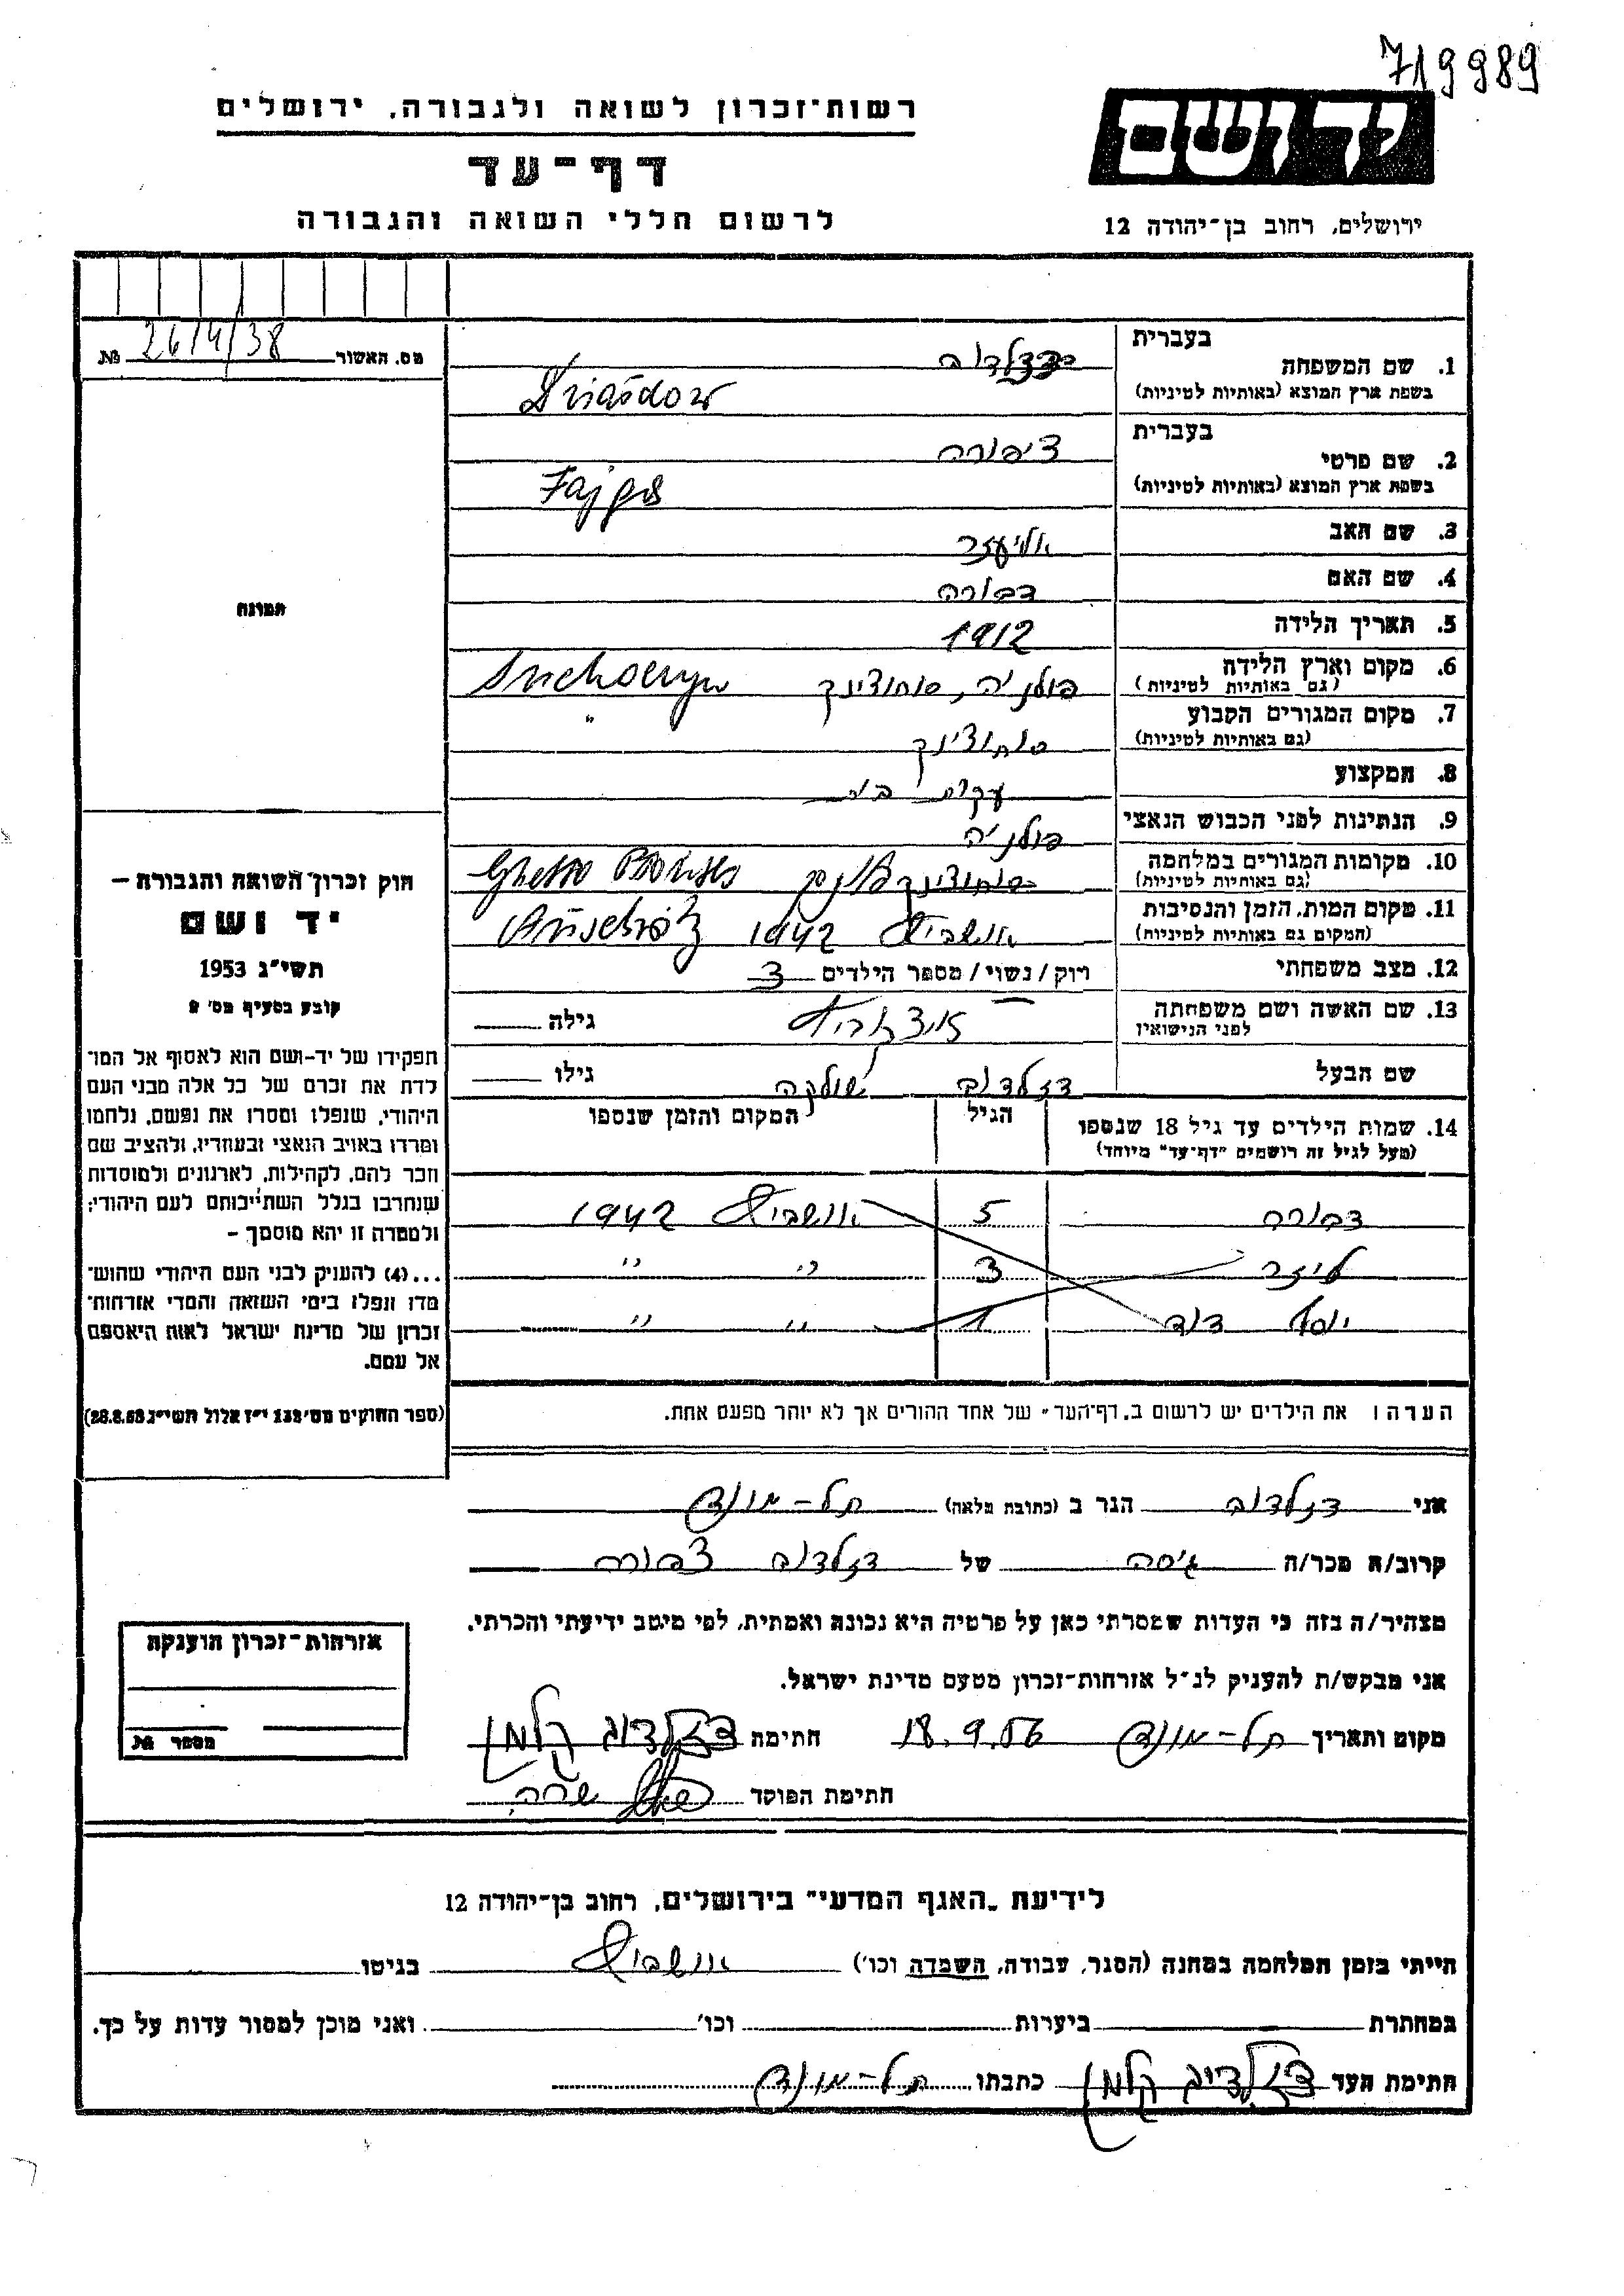 719989
רשות־זכרון לשואה ולגבורה, ירושלים
יד ושם
דף־עד
לרשום חללי השואה והגבורה
ירושלים, רחוב בן־יהודה 12
מס. האשור 26/4/38 №
בעברית
1. שם המשפחה דזלדוב
בשפת ארץ המוצא (באותיות לטיניות) Działdow
בעברית
2. שם פרטי ציפורה
בשפת ארץ המוצא (באותיות לטיניות) Fajga
3. שם האב אליעזר
4. שם האם דבורה
5. תאריך הלידה 1912
6. מקום וארץ הלידה פולניה, סוחוצינק
(גם באותיות לטיניות)
7. מקום המגורים הקבוע סוחוצינק "
(גם באותיות לטיניות)
8. המקצוע עקרת בית
9. הנתינות לפני הכבוש הנאצי פולניה
10. מקומות המגורים במלחמה סוחוצינק Ghetto
(גם באותיות לטיניות)
11. מקום המות, הזמן והנסיבות אושביץ 1942
(המקום גם באותיות לטיניות)
12. מצב משפחתי רוק / נשוי / מספר הילדים 3
13. שם האשה ושם משפחתה גילה
לפני הנישואין
שם הבעל דזלדוב גילו
14. שמות הילדים עד גיל 18 שנספו הגיל המקום והזמן שנספו
(מעל לגיל זה רושמים "דף־עד" מיוחד)
דבורה 5 אושביץ 1942
ליזר 3 " " "
יוסף דוד 1 " " "
הערה: את הילדים יש לרשום ב"דף־העד" של אחד ההורים אך לא יותר מפעם אחת.
תמונה
חוק זכרון השואה והגבורה –
יד ושם
תשי"ג 1953
קובע בסעיף מס'
תפקידו של יד־ושם הוא לאסוף אל המו־
לדת את זכרם של כל אלה מבני העם
היהודי, שנפלו ומסרו את נפשם, נלחמו
ומרדו באויב הנאצי ובעוזריו, ולהציב שם
וזכר להם, לקהילות, לארגונים ולמוסדות
שנחרבו בגלל השתייכותם לעם היהודי;
ולמטרה זו יהא מוסמך –
...(4) להעניק לבני העם היהודי שהוש־
מדו ונפלו בימי השואה והמרי אזרחות־
זכרון של מדינת ישראל לאות היאספם
אל עמם.
(ספר החוקים מס' 132 י"ז אלול תשי"ג 28.8.53)
אני דזלדוב הגר ב (כתובת מלאה) תל-מונד
קרוב/ה מכר/ה גיסה של דזלדוב צפורה
מצהיר/ה בזה כי העדות שמסרתי כאן על פרטיה היא נכונה ואמתית, לפי מיטב ידיעתי והכרתי.
אני מבקש/ת להעניק לנ"ל אזרחות־זכרון מטעם מדינת ישראל.
מקום ותאריך תל-מונד 18.9.56 חתימה דזלדוב קלמן
חתימת הפוקד שרה
אזרחות־זכרון הוענקה
מספר №
לידיעת "האגף המדעי" בירושלים, רחוב בן־יהודה 12
הייתי בזמן המלחמה במחנה (הסגר, עבודה, השמדה וכו') אושביץ בגיטו
במחתרת ביערות וכו' ואני מוכן למסור עדות על כך.
חתימת העד דזלדוב קלמן כתבתו תל-מונד